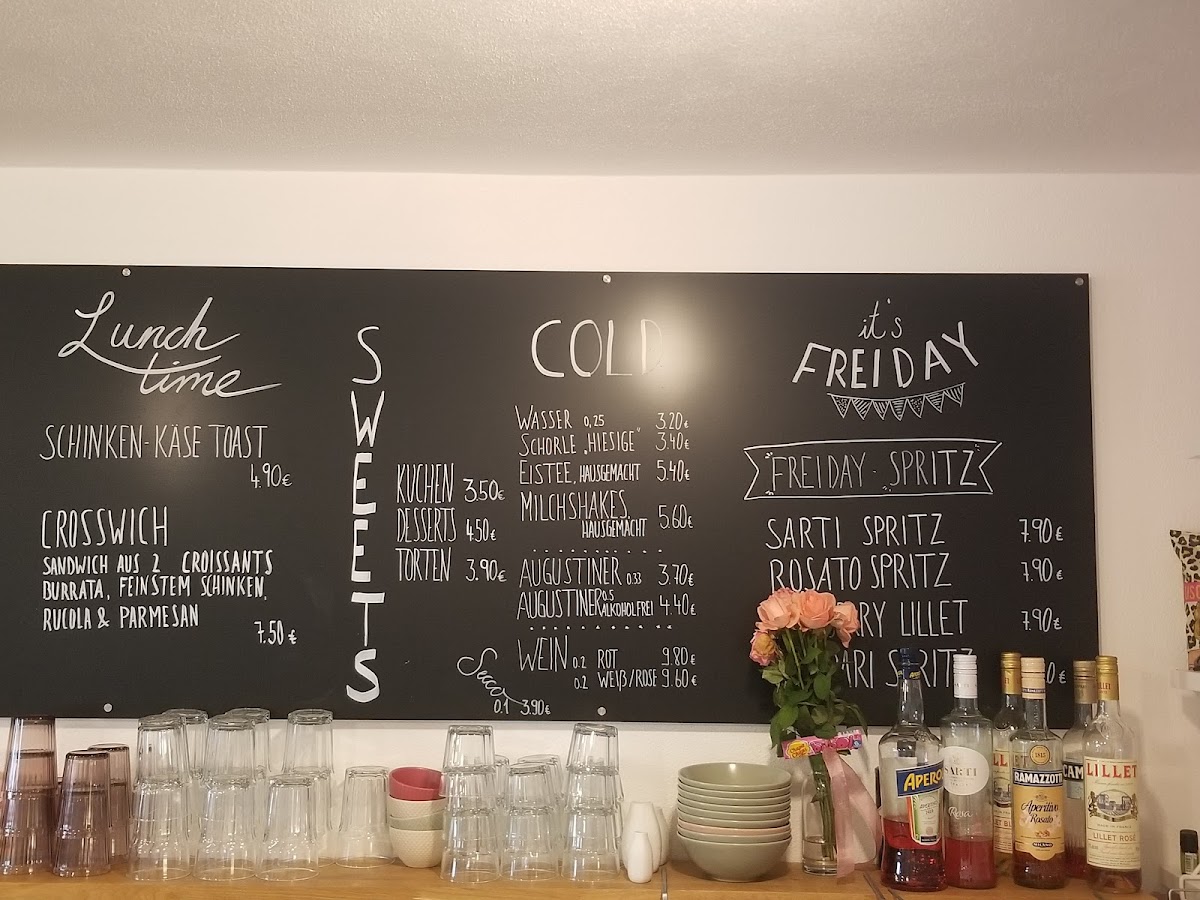 Lunch
time
SCHINKEN-KÄSE TOAST
4.90€
CROSSWICH
SANDWICH AUS 2 CROISSANTS
BURRATA, FEINSTEM SCHINKEN,
RUCOLA & PARMESAN
7.50€
SWEETS
KUCHEN 3.50€
DESSERTS 4.50€
TORTEN 3.90€
COLD
WASSER 0,25 3.20€
SCHORLE „HIESIGE" 3.40€
EISTEE, HAUSGEMACHT 5.40€
MILCHSHAKES,
HAUSGEMACHT 5.60€
AUGUSTINER 0.33 3.70€
AUGUSTINER 0.5 ALKOHOLFREI 4.40€
WEIN 0.2 ROT 9.80€
0.2 WEIß/ROSE 9.60€
Secco
0.1 3.90€
it's
FREIDAY
"FREIDAY - SPRITZ"
SARTI SPRITZ 7.90€
ROSATO SPRITZ 7.90€
LILLET 7.90€
SPRITZ €
APEROL
SARTI
Rosa
LILLET
RAMAZZOTTI
Aperitivo
Rosato
MILANO
CAM
LILLET
LILLET ROSÉ